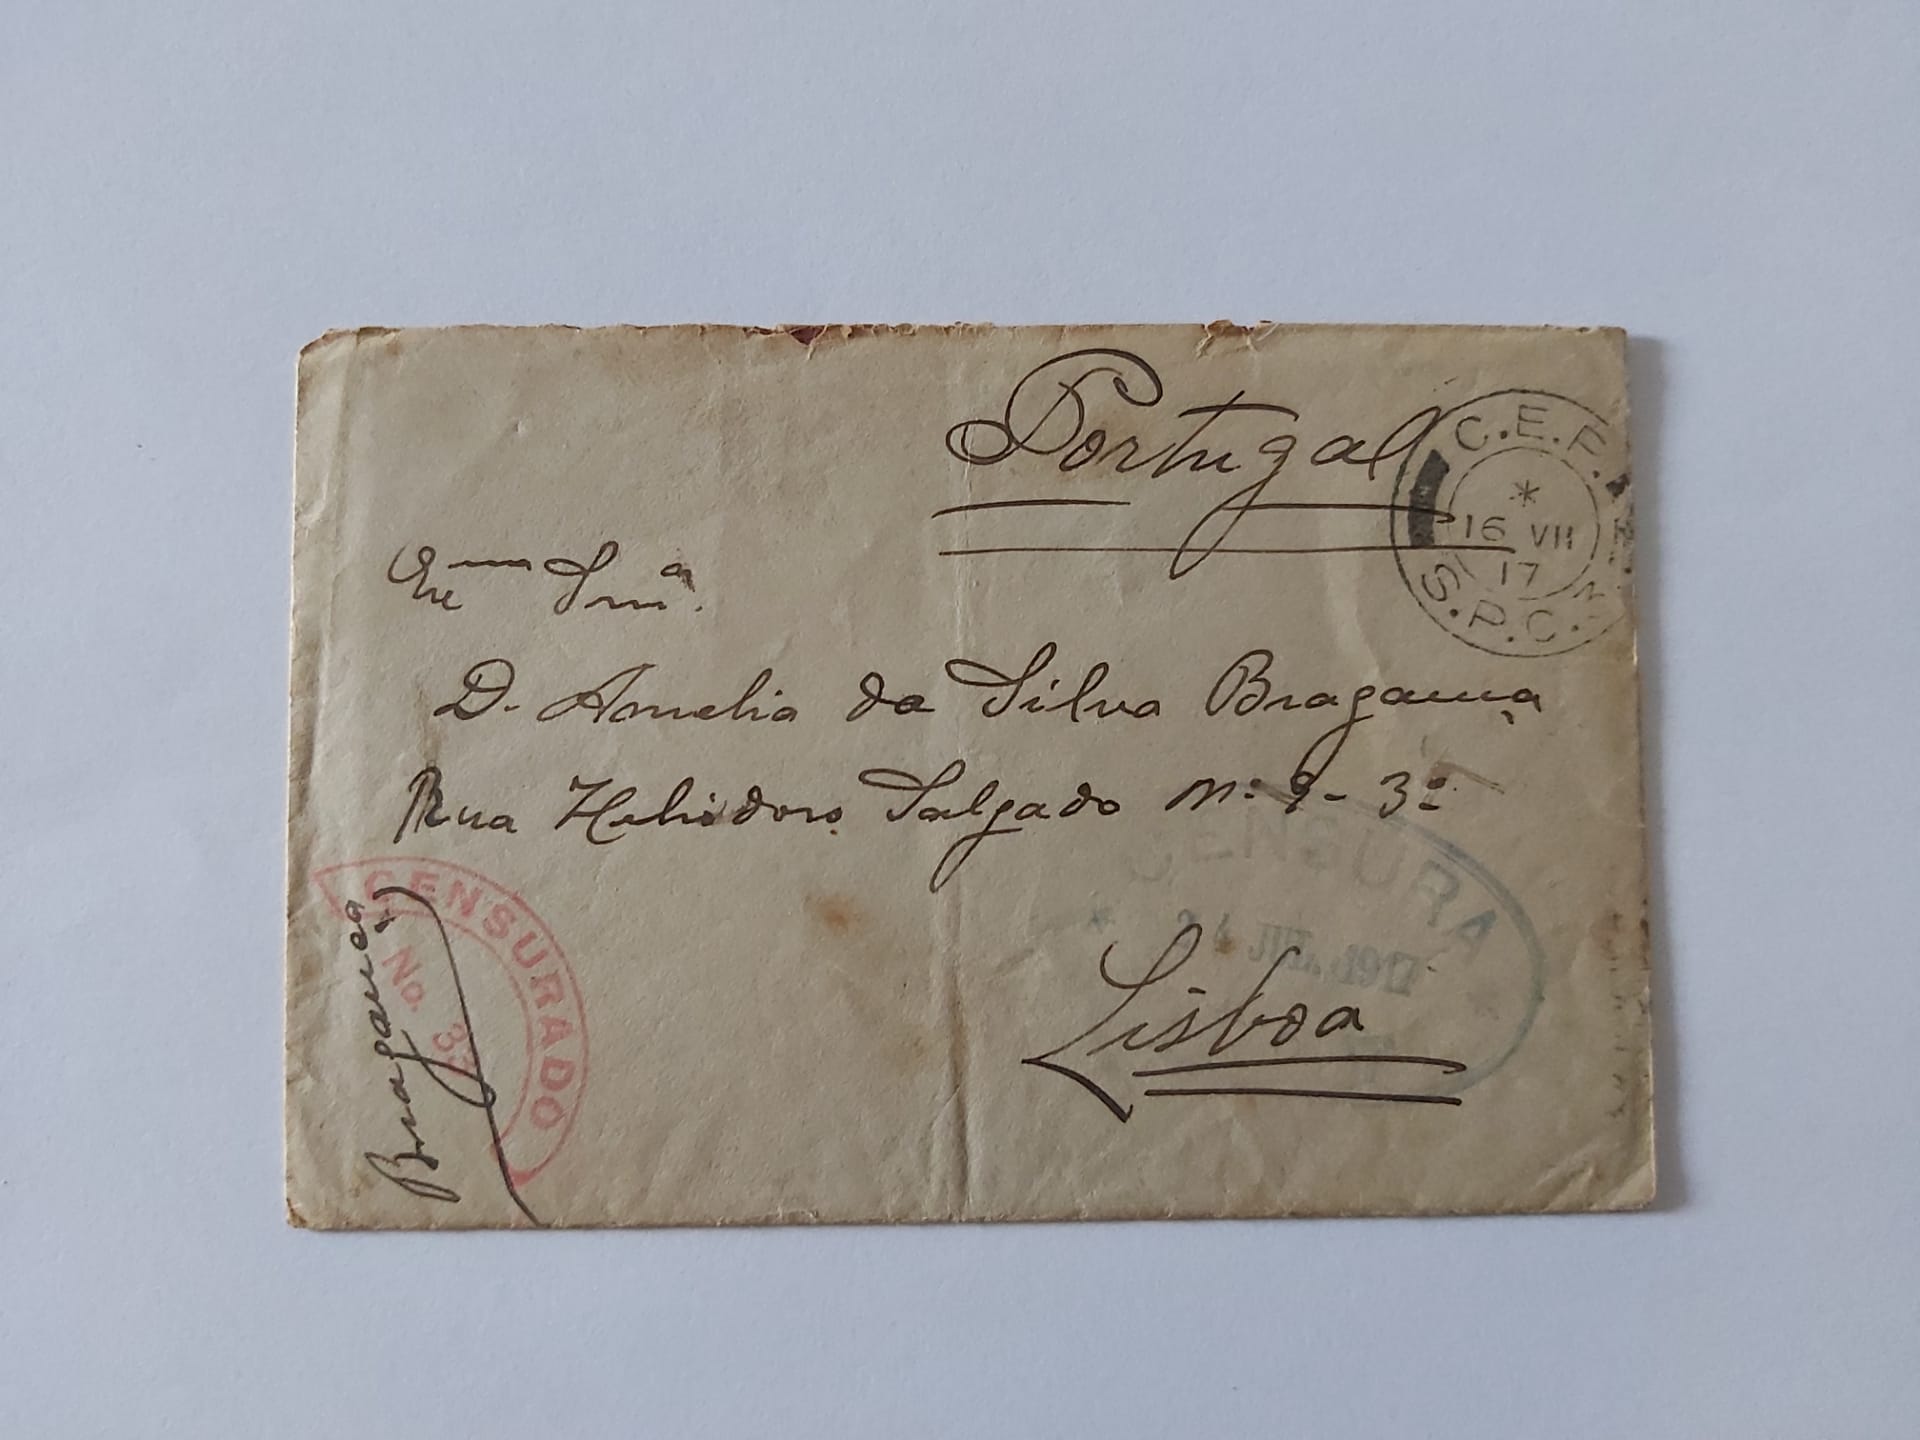 Portugal
C.E.F.
*
16 VII
17
S.P.C.
Exma Snra.
D. Amelia da Silva Bragança
Rua Heliodoro Salgado Nº 9 - 3º
CENSURA
JUL. 1917
Lisboa
CENSURADO
No.
Bragança